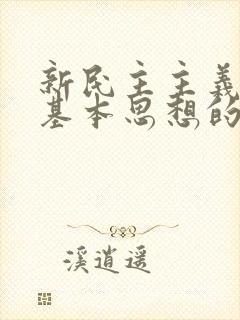 新民主主義
基本思想的
溪逍遥